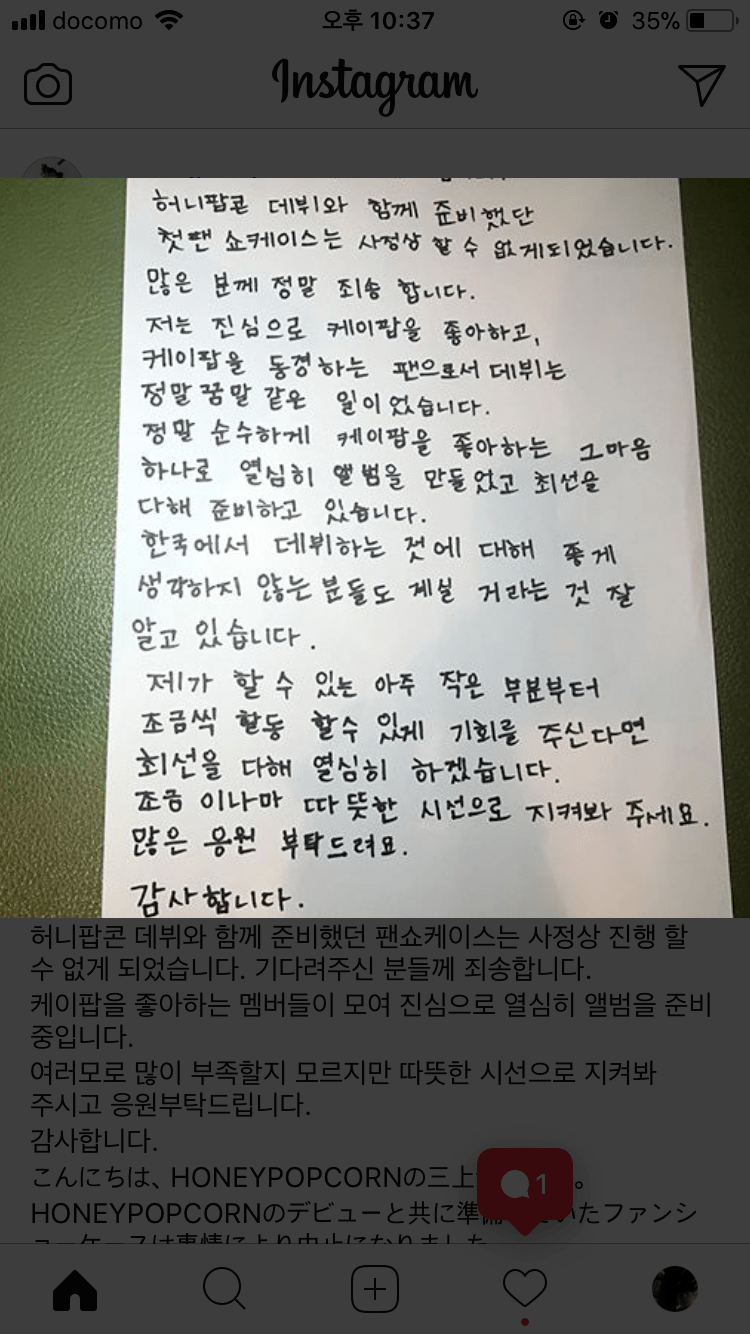 docomo 오후 10:37 35%
Instagram
허니팝콘 데뷔와 함께 준비했단
첫팬 쇼케이스는 사정상 할 수 없게되었습니다.
많은 분께 정말 죄송 합니다.
저는 진심으로 케이팝을 좋아하고,
케이팝을 동경하는 팬으로서 데뷔는
정말 꿈말 같은 일이었습니다.
정말 순수하게 케이팝을 좋아하는 그마음
하나로 열심히 앨범을 만들었고 최선을
다해 준비하고 있습니다.
한국에서 데뷔하는 것에 대해 좋게
생각하지 않는 분들도 계실 거라는 것 잘
알고 있습니다.
제가 할 수 있는 아주 작은 부분부터
조금씩 활동 할수 있게 기회를 주신다면
최선을 다해 열심히 하겠습니다.
조금 이나마 따뜻한 시선으로 지켜봐 주세요.
많은 응원 부탁드려요.
감사합니다.
허니팝콘 데뷔와 함께 준비했던 팬쇼케이스는 사정상 진행 할
수 없게 되었습니다. 기다려주신 분들께 죄송합니다.
케이팝을 좋아하는 멤버들이 모여 진심으로 열심히 앨범을 준비
중입니다.
여러모로 많이 부족할지 모르지만 따뜻한 시선으로 지켜봐
주시고 응원부탁드립니다.
감사합니다.
こんにちは、HONEYPOPCORNの三上 。
1
HONEYPOPCORNのデビューと共に準備 いたファンシ
ョーケースは事情により中止になりました